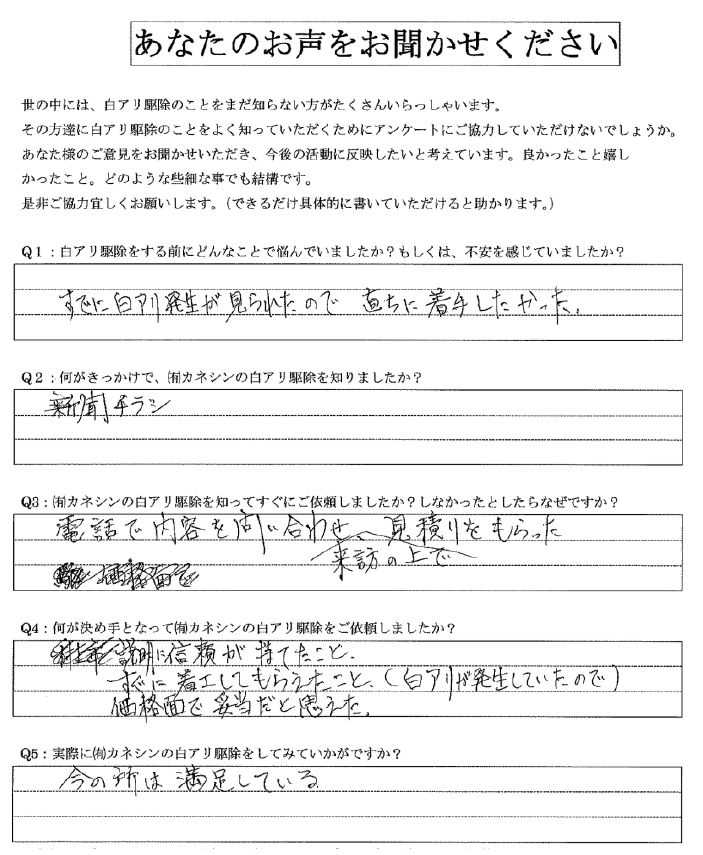 あなたのお声をお聞かせください
世の中には、白アリ駆除のことをまだ知らない方がたくさんいらっしゃいます。
その方達に白アリ駆除のことをよく知っていただくためにアンケートにご協力していただけないでしょうか。
あなた様のご意見をお聞かせいただき、今後の活動に反映したいと考えています。良かったこと嬉し
かったこと。どのような些細な事でも結構です。
是非ご協力宜しくお願いします。（できるだけ具体的に書いていただけると助かります。）
Q1：白アリ駆除をする前にどんなことで悩んでいましたか？もしくは、不安を感じていましたか？
すでに白アリ発生が見られたので 直ちに着手したかった。
Q2：何がきっかけで、㈲カネシンの白アリ駆除を知りましたか？
新聞チラシ
Q3：㈲カネシンの白アリ駆除を知ってすぐにご依頼しましたか？しなかったとしたらなぜですか？
電話で内容を問い合わせ、見積りをもらった
来訪の上で
Q4：何が決め手となって㈲カネシンの白アリ駆除をご依頼しましたか？
説明に信頼が持てたこと、
すぐに着工してもらえたこと、（白アリが発生していたので）
価格面で妥当だと思えた。
Q5：実際に㈲カネシンの白アリ駆除をしてみていかがですか？
今の所は満足している